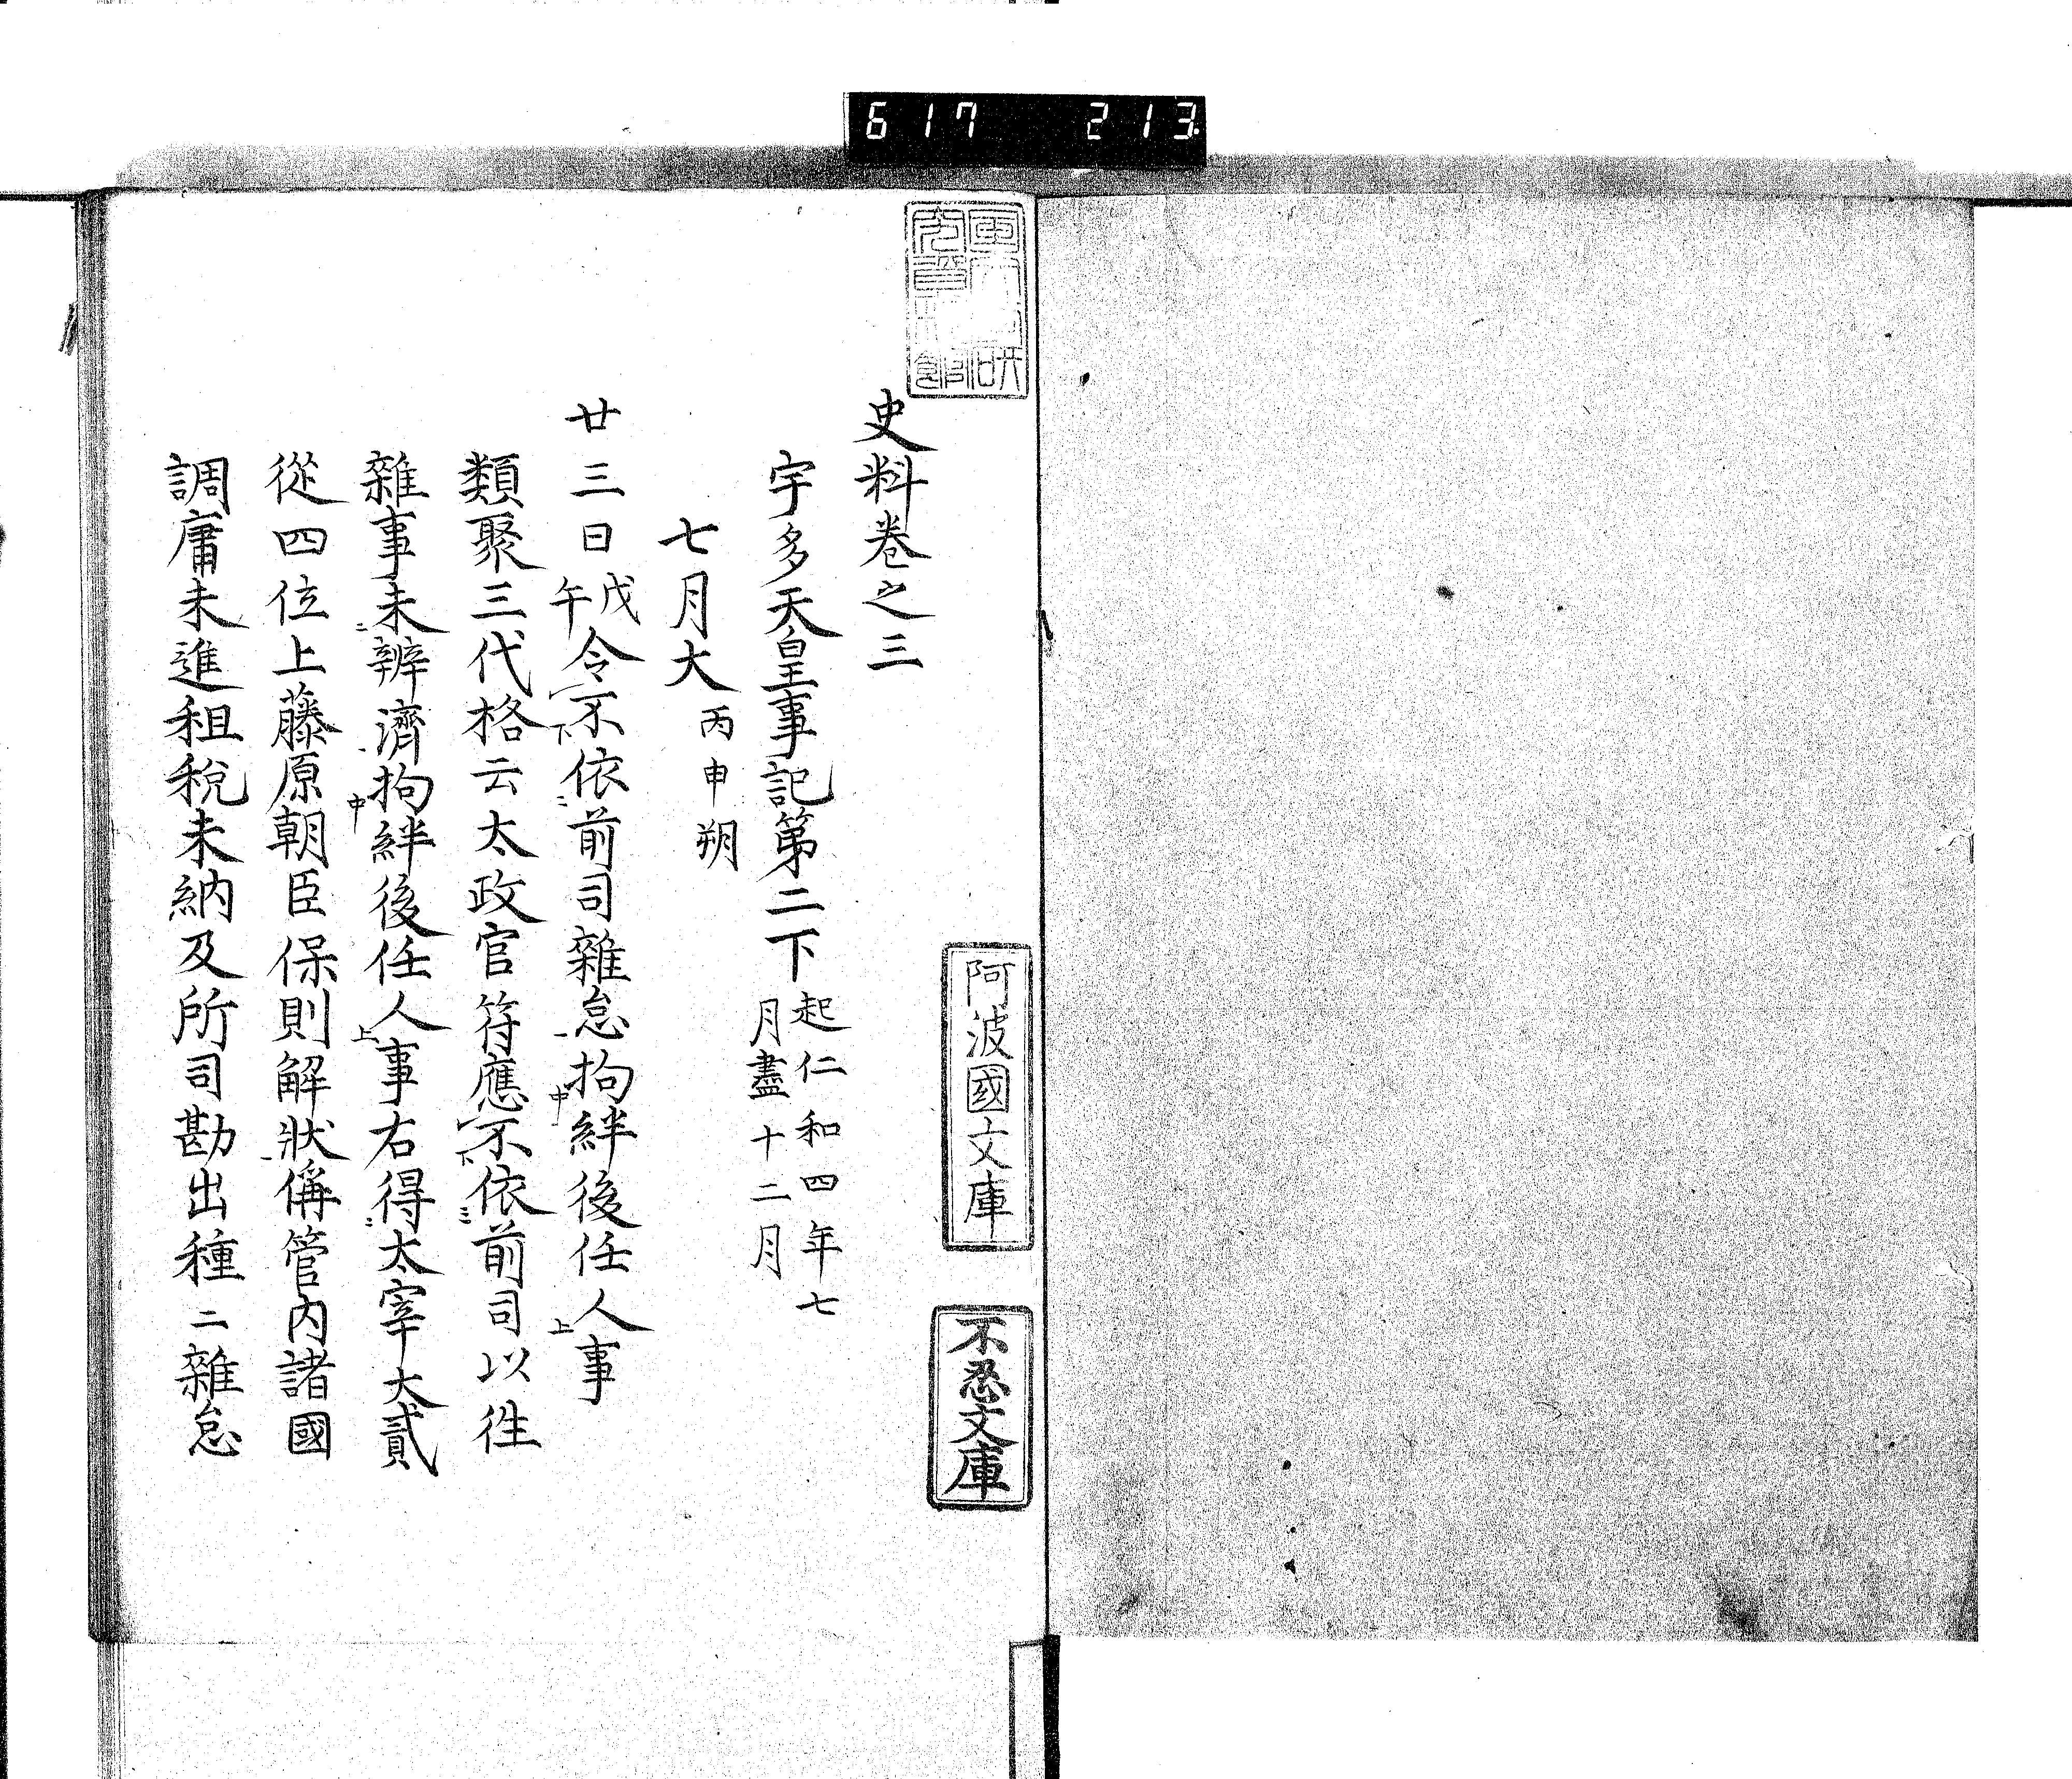 6 1 7 2 1 3
史料卷之三
宇多天皇事記第二下 起仁和四年七月盡十二月
七月大 丙申朔
廿三日戊午令不依前司雜怠拘絆後任人事
類聚三代格云太政官符應不依前司以徃
雜事未辨濟拘絆後任人事右得太宰大貳
從四位上藤原朝臣保則解狀偁管内諸國
調庸未進租税未納及所司勘出種二雜怠
阿波國文庫
不忍文庫